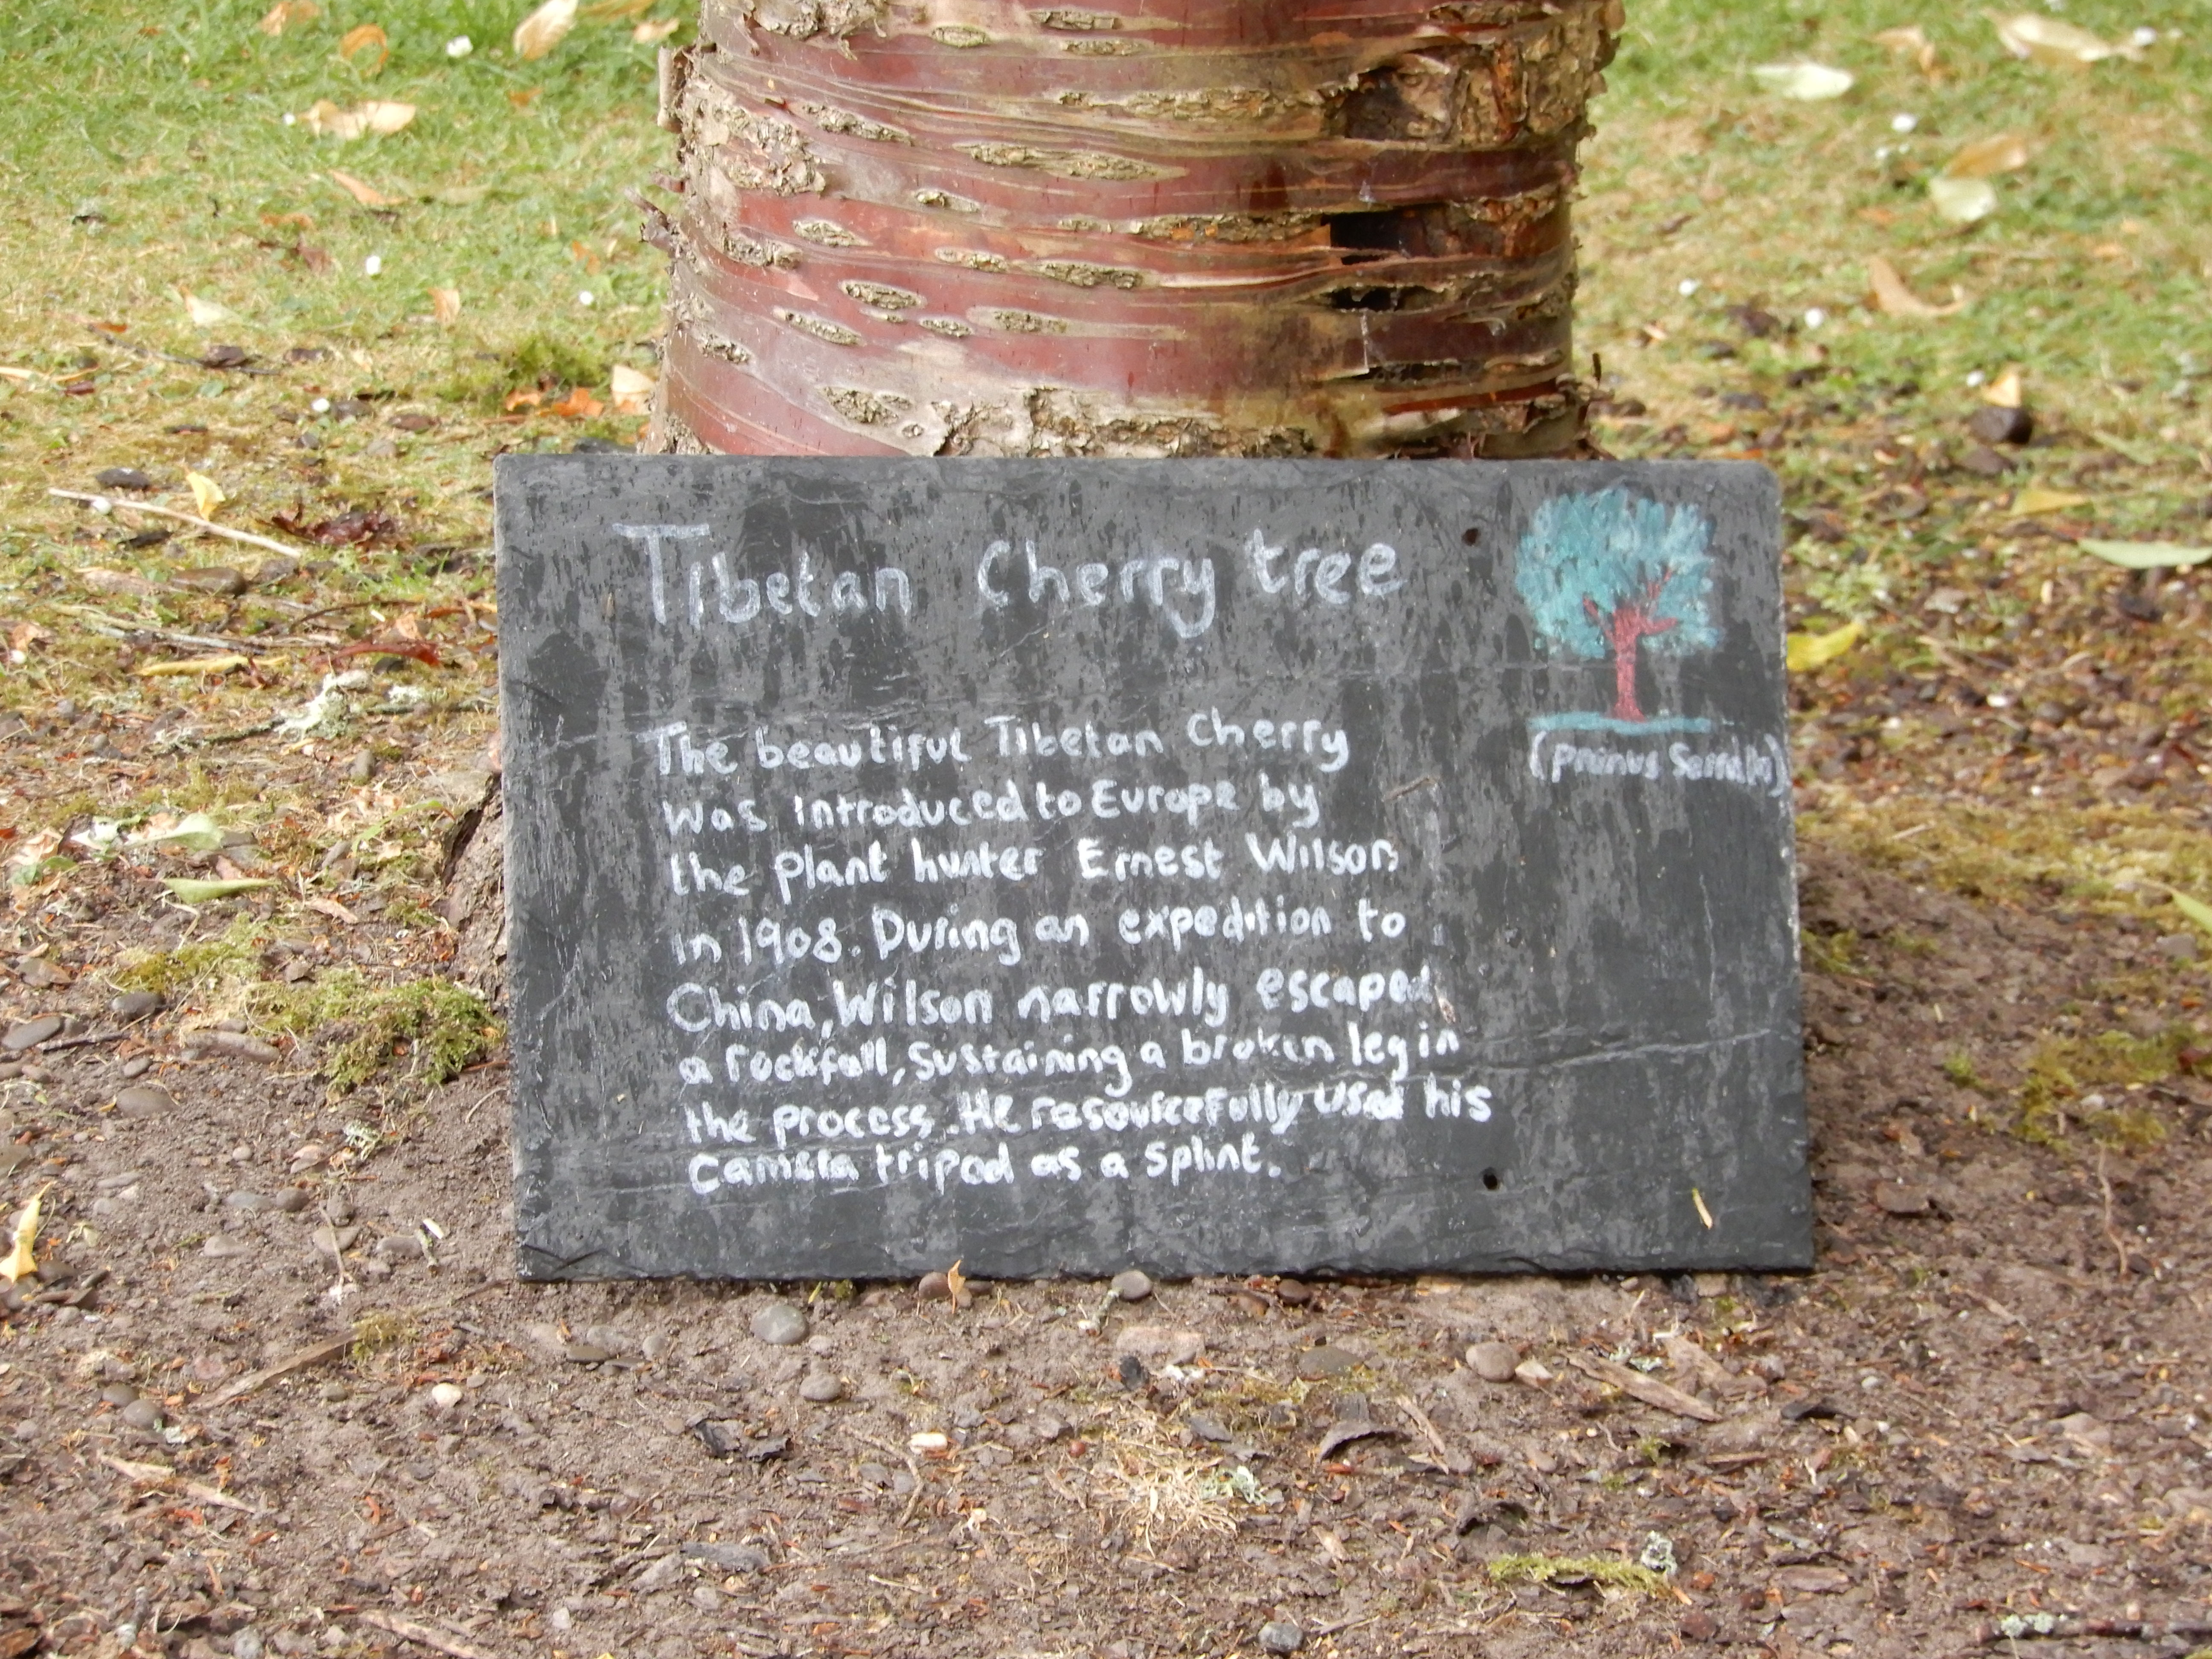 Tibetan Cherry tree
(prunus Serrula)
The beautiful Tibetan Cherry
was introduced to Europe by
the plant hunter Ernest Wilson
in 1908. During an expedition to
China, Wilson narrowly escaped
a rockfall, sustaining a broken leg in
the process. He resourcefully used his
camera tripod as a splint.